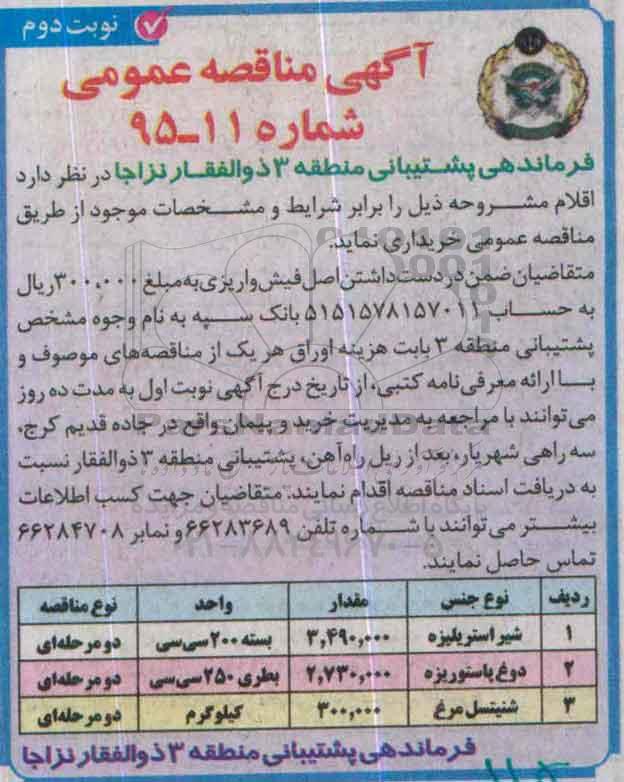 نوبت دوم
آگهی مناقصه عمومی
شماره ۱۱ـ۹۵
فرماندهی پشتیبانی منطقه ۳ ذوالفقار نزاجا در نظر دارد
اقلام مشروحه ذیل را برابر شرایط و مشخصات موجود از طریق
مناقصه عمومی خریداری نماید.
متقاضیان ضمن در دست داشتن اصل فیش واریزی به مبلغ ۳۰۰,۰۰۰ ریال
به حساب ۵۱۵۱۵۷۸۱۵۷۰۱۱ بانک سپه به نام وجوه مشخص
پشتیبانی منطقه ۳ بابت هزینه اوراق هر یک از مناقصه‌های موصوف و
با ارائه معرفی‌نامه کتبی، از تاریخ درج آگهی نوبت اول به مدت ده روز
می‌توانند با مراجعه به مدیریت خرید و پیمان واقع در جاده قدیم کرج،
سه راهی شهریار، بعد از ریل راه‌آهن، پشتیبانی منطقه ۳ ذوالفقار نسبت
به دریافت اسناد مناقصه اقدام نمایند. متقاضیان جهت کسب اطلاعات
بیشتر می‌توانند با شماره تلفن ۶۶۲۸۳۶۸۹ و نمابر ۶۶۲۸۴۷۰۸
تماس حاصل نمایند.
ردیف نوع جنس مقدار واحد نوع مناقصه
۱ شیر استریلیزه ۳,۴۹۰,۰۰۰ بسته ۲۰۰ سی‌سی دو مرحله‌ای
۲ دوغ پاستوریزه ۲,۷۳۰,۰۰۰ بطری ۲۵۰ سی‌سی دو مرحله‌ای
۳ شنیتسل مرغ ۳۰۰,۰۰۰ کیلوگرم دو مرحله‌ای
فرماندهی پشتیبانی منطقه ۳ ذوالفقار نزاجا